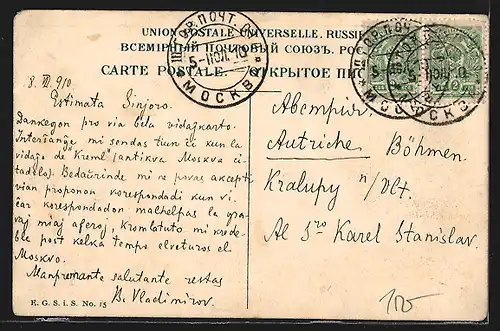 UNION POSTALE UNIVERSELLE. RUSSIE
ВСЕМІРНЫЙ ПОЧТОВЫЙ СОЮЗЪ. РОС
CARTE POSTALE. ОТКРЫТОЕ ПИС
МОСКВ
5-110/1.10
8. III. 910
Estimata Sinjoro.
Dankegon pro via bela vidajkarto.
Interŝanĝe mi sendas tiun ĉi kun la
vidaĵo de "Kreml" (antikva Moskva ci-
tadelo). Bedaŭrinde mi ne povas akcepti
vian proponon korespondadi kun vi
ĉar korespondadon malhelpas la gra-
vaj miaj aferoj, krom tuto mi kredeble
post kelka tempo elveturos el
Moskvo.
Manpremante salutante restas
B. Vladimirov.
E. G. S. i. S. No. 15
Австрия.
Autriche. Böhmen.
Kralupy n/Vlt.
Al S-ro Karel Stanislav.